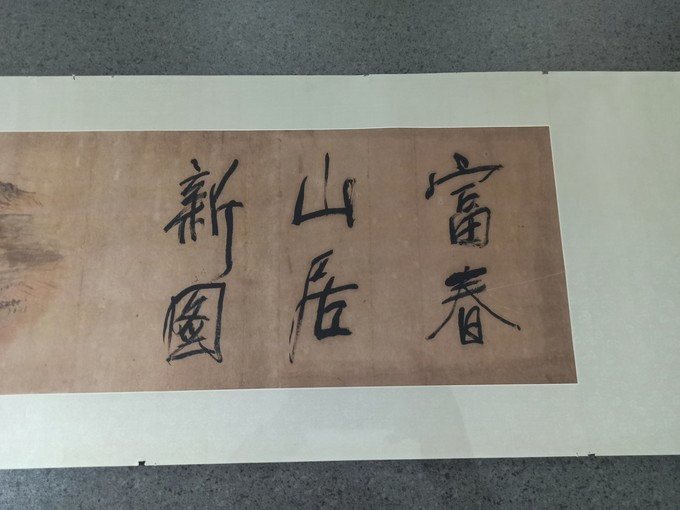 富春
山居
新圖